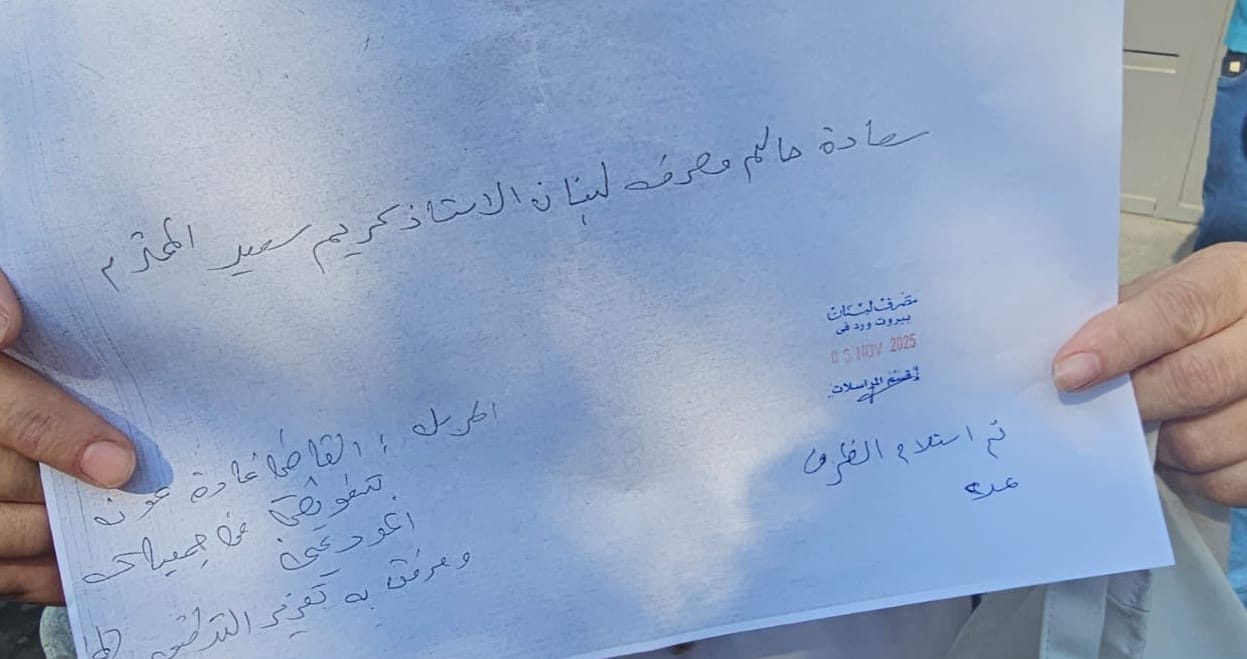 سعادة حاكم مصرف لبنان الاستاذ كريم سعيد المحترم
مصرف لبنان
بيروت ورد في
05 NOV 2025
قسم المراسلات
تم استلام الظرف
المرسل: القاضي غادة عون
بتفويض من جمعيات
المودعين
ومرفق به تقرير التدقيق